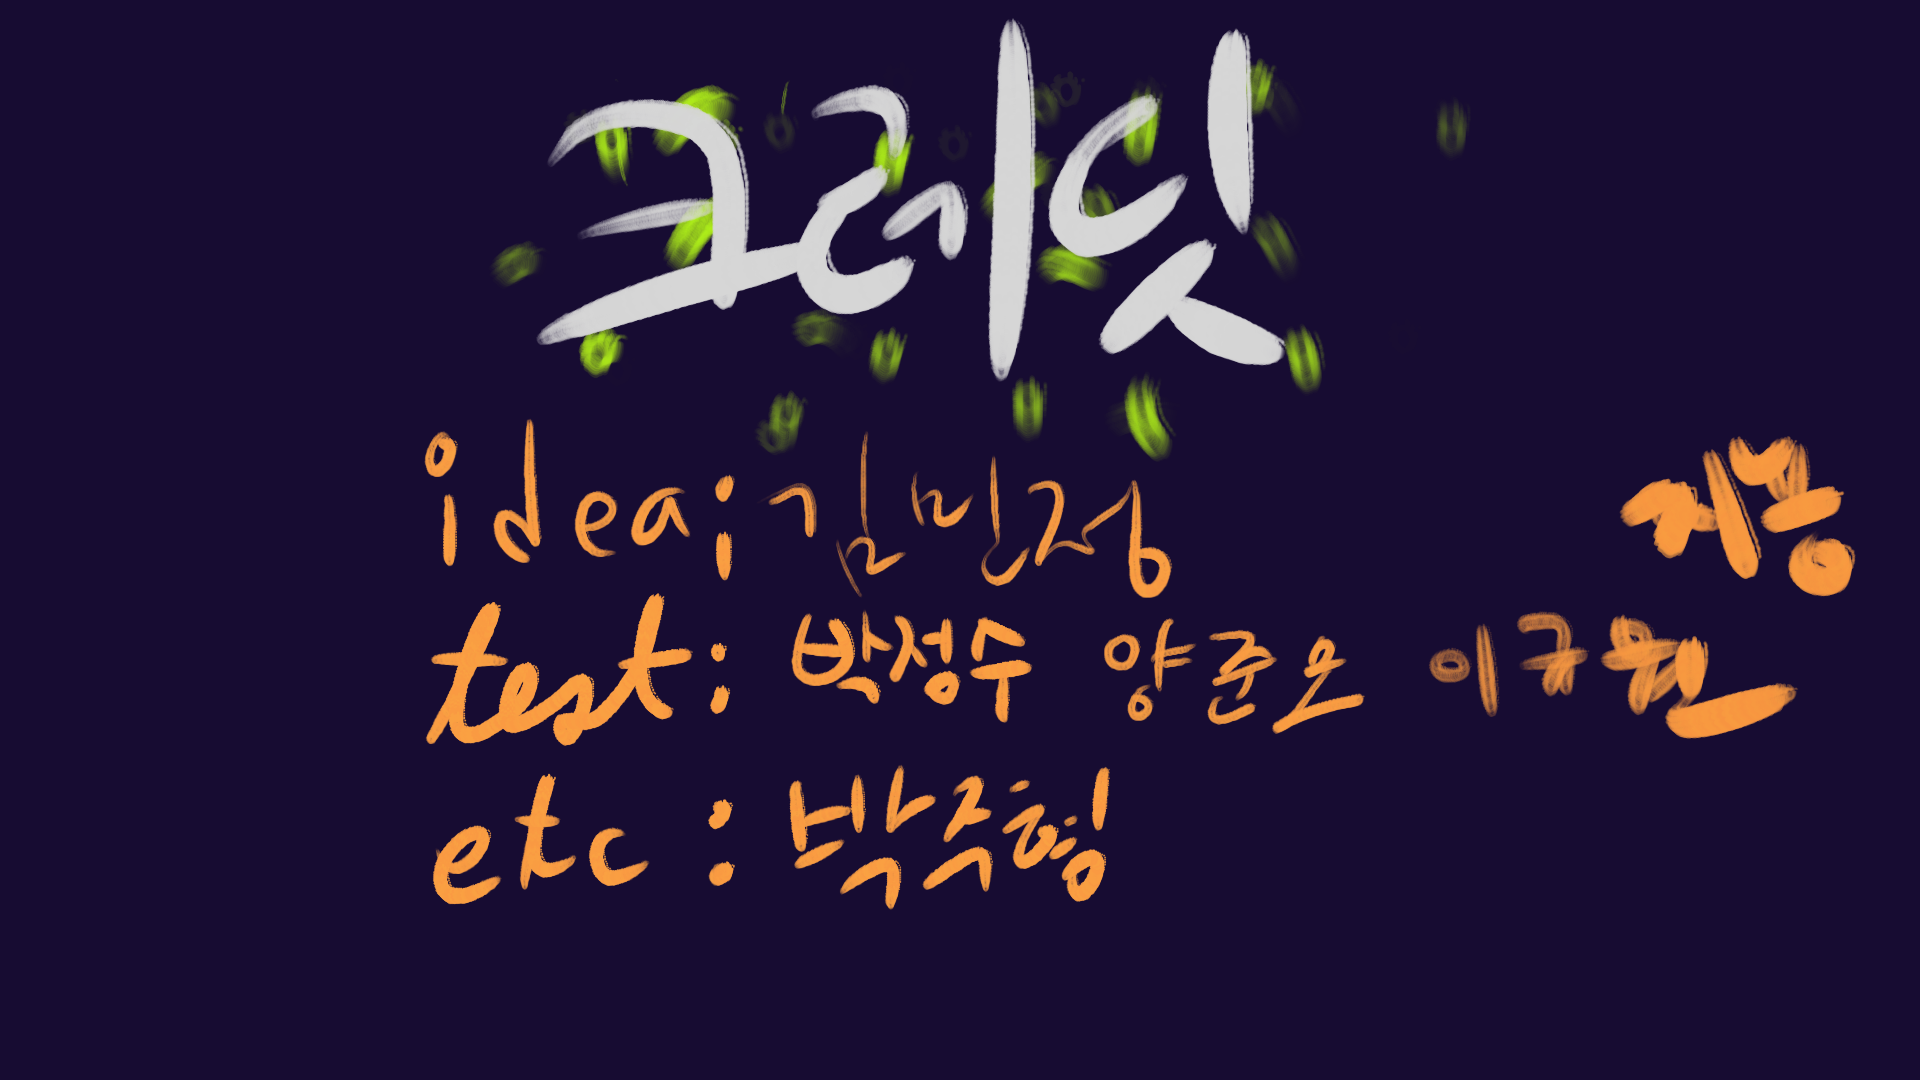 크레딧
idea; 김민정
test: 박성수 양준오 이규원
etc : 박주형